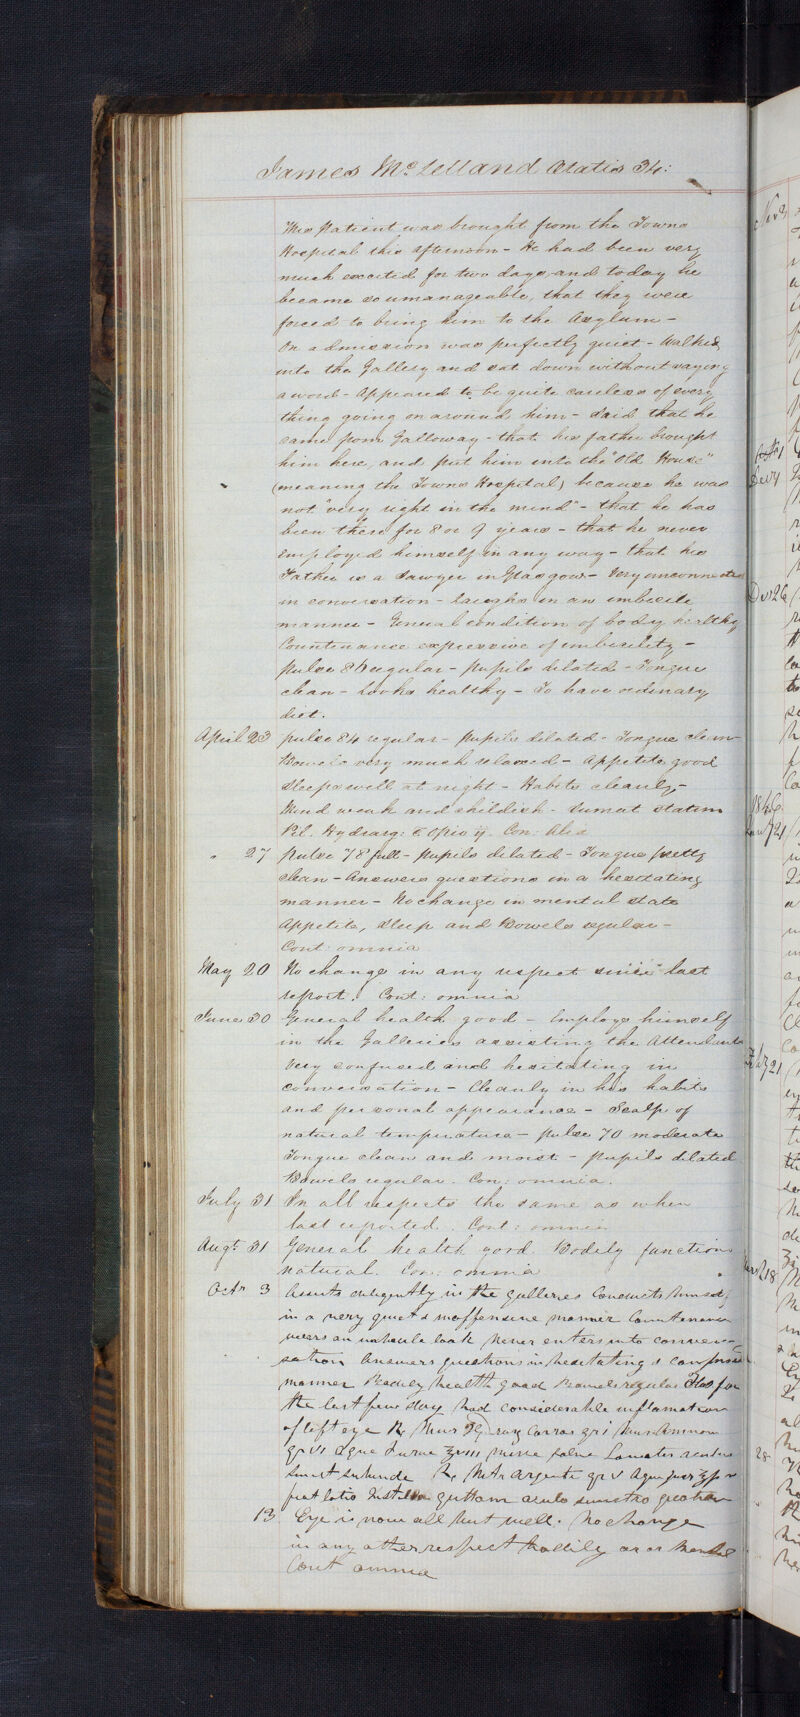 James McLelland Ætatis 34:
This Patient was brought from the Towns
Hospital this afternoon - He had been very
much excited for two days and today he
became so unmanageable, that they were
forced to bring him to the Asylum -
On admission was perfectly quiet - Walked
into the Gallery and sat down without saying
a word - Appeared to be quite careless of every
thing going on around him - Said that he
came from Galloway - that his father brought
him here, and put him into the "Old House"
(meaning the Towns Hospital) because he was
not "very right in the mind" - that he has
been there for 8 or 9 years - that he never
employed himself in any way - that his
Father is a Sawyer in Glasgow - Very unconnected
in conversation - laughs in an imbecile
manner - General condition of body healthy
Countenance expressive of imbecility -
Pulse 86 regular - Pupils dilated - Tongue
clean - looks healthy - To have ordinary
diet.
April 23 Pulse 84 regular - Pupils dilated - Tongue clean
Bowels very much relaxed - Appetite good
Sleeps well at night - Habits cleanly -
Mind weak and childish - Sumat statim
Pil. Hydrarg: & Opio ij. Con: Alia
" 27 Pulse 78 full - Pupils dilated - Tongue pretty
clean - Answers questions in a hesitating
manner - No change in mental state
Appetite, Sleep and Bowels regular -
Cont: omnia
May 20 No change in any respect since last
report. Cont: omnia
June 30 General health good - Employs himself
in the Galleries assisting the Attendants
Very confused and hesitating in
conversation - Cleanly in his habits
and personal appearance - Scalp of
natural temperature - Pulse 70 moderate
Tongue clean and moist - Pupils dilated
Bowels regular. Con: omnia.
July 31 In all respects the same as when
last reported. Cont: omnia
Augt. 31 General health good. Bodily functions
natural. Con: omnia
Octr 3 Assists diligently in the galleries Conducts himself
in a very quiet & inoffensive manner Countenance
wears an imbecile look Never enters into conver
sation Answers questions in hesitating & confused
manner Bodily health good Bowels regular Has for
the last few days had considerable inflamation
of left eye
gr VI
gr V
guttam
13 Eye is now all but well. No change
in any other respect bodily or mental
Cont omnia
Decr 26
1846
28